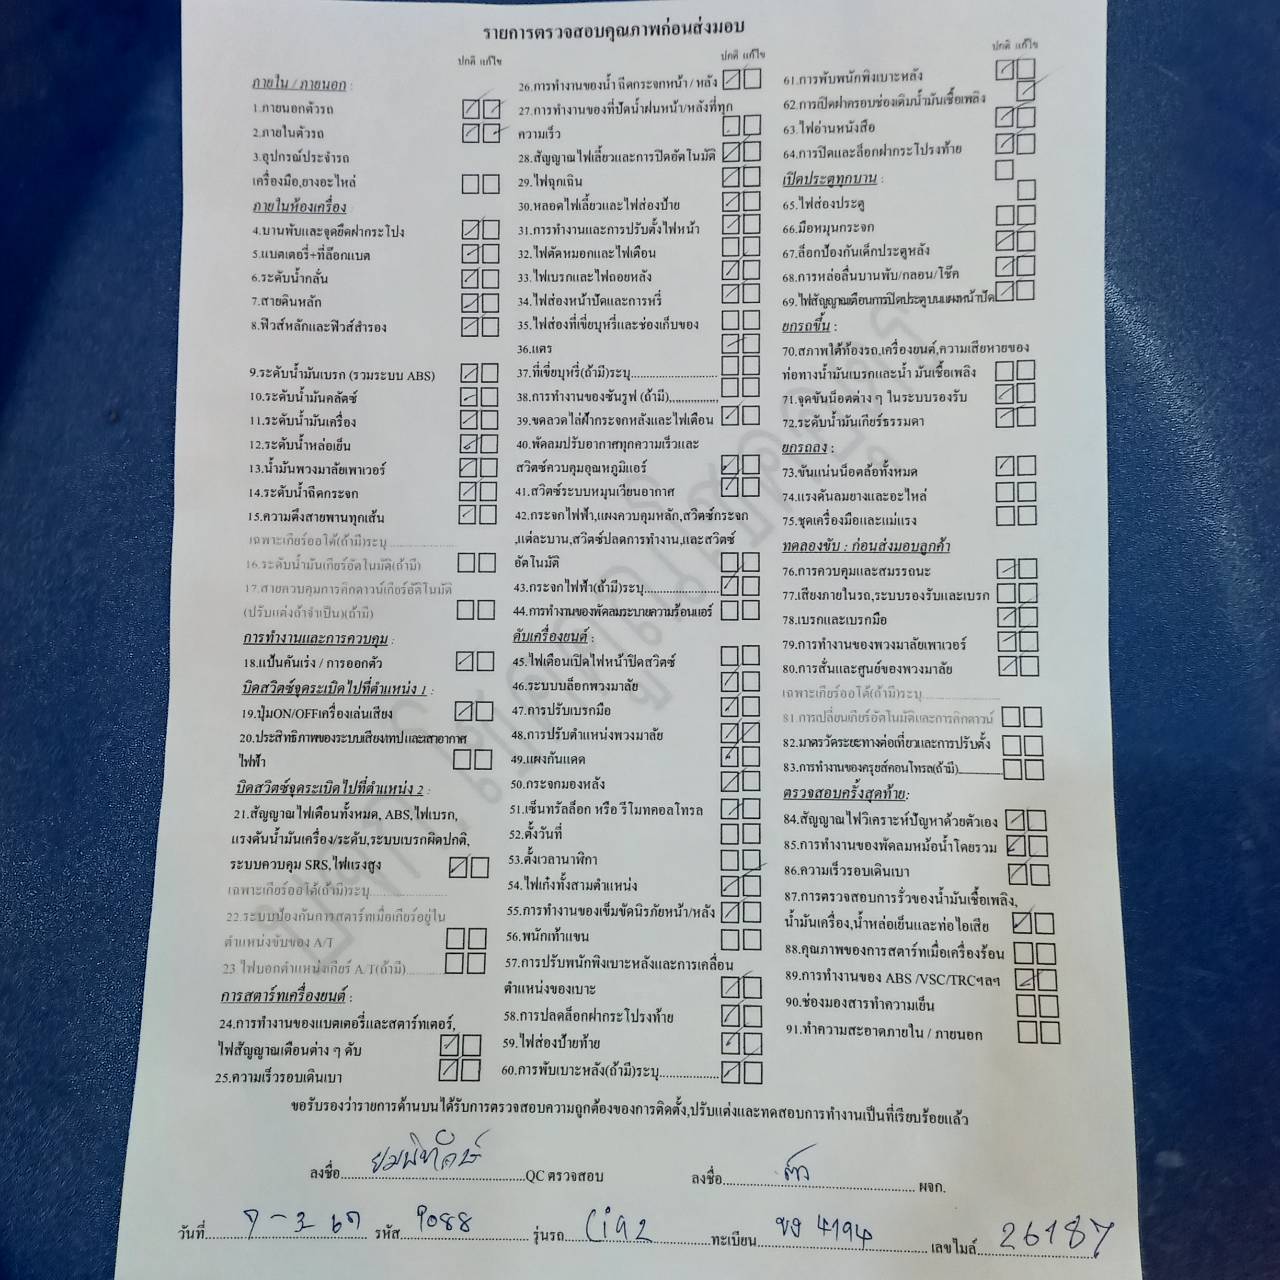 รายการตรวจสอบคุณภาพก่อนส่งมอบ
ปกติ แก้ไข
ภายใน / ภายนอก :
1.ภายนอกตัวรถ
2.ภายในตัวรถ
3.อุปกรณ์ประจำรถ
เครื่องมือ,ยางอะไหล่
ภายในห้องเครื่อง :
4.บานพับและจุดยึดฝากระโปง
5.แบตเตอรี่+ที่ล็อกแบต
6.ระดับน้ำกลั่น
7.สายดินหลัก
8.ฟิวส์หลักและฟิวส์สำรอง
9.ระดับน้ำมันเบรก (รวมระบบ ABS)
10.ระดับน้ำมันคลัตซ์
11.ระดับน้ำมันเครื่อง
12.ระดับน้ำหล่อเย็น
13.น้ำมันพวงมาลัยเพาเวอร์
14.ระดับน้ำฉีดกระจก
15.ความตึงสายพานทุกเส้น
เฉพาะเกียร์ออโต้(ถ้ามี)ระบุ
16.ระดับน้ำมันเกียร์อัตโนมัติ(ถ้ามี)
17.สายควบคุมการคิกดาวน์เกียร์อัติโนมัติ
(ปรับแต่งถ้าจำเป็น)(ถ้ามี)
การทำงานและการควบคุม :
18.แป้นคันเร่ง / การออกตัว
บิดสวิตซ์จุดระเบิดไปที่ตำแหน่ง 1 :
19.ปุ่มON/OFFเครื่องเล่นเสียง
20.ประสิทธิภาพของระบบเสียง/เทป และเสาอากาศ
ไฟฟ้า
บิดสวิตซ์จุดระเบิดไปที่ตำแหน่ง 2 :
21.สัญญาณไฟเตือนทั้งหมด, ABS,ไฟเบรก,
แรงดันน้ำมันเครื่อง/ระดับ,ระบบเบรกผิดปกติ,
ระบบควบคุม SRS,ไฟแรงสูง
เฉพาะเกียร์ออโต้(ถ้ามี)ระบุ
22.ระบบป้องกันการสตาร์ทเมื่อเกียร์อยู่ใน
ตำแหน่งขับของ A/T
23 ไฟบอกตำแหน่งเกียร์ A/T(ถ้ามี)
การสตาร์ทเครื่องยนต์ :
24.การทำงานของแบตเตอรี่และสตาร์ทเตอร์,
ไฟสัญญาณเตือนต่าง ๆ ดับ
25.ความเร็วรอบเดินเบา
ปกติ แก้ไข
26.การทำงานของน้ำ ฉีดกระจกหน้า / หลัง
27.การทำงานของที่ปัดน้ำฝนหน้า/หลังที่ทุก
ความเร็ว
28.สัญญาณไฟเลี้ยวและการปิดอัตโนมัติ
29.ไฟฉุกเฉิน
30.หลอดไฟเลี้ยวและไฟส่องป้าย
31.การทำงานและการปรับตั้งไฟหน้า
32.ไฟตัดหมอกและไฟเตือน
33.ไฟเบรกและไฟถอยหลัง
34.ไฟส่องหน้าปัดและการหรี่
35.ไฟส่องที่เขี่ยบุหรี่และช่องเก็บของ
36.แตร
37.ที่เขี่ยบุหรี่(ถ้ามี)ระบุ
38.การทำงานของซันรูฟ (ถ้ามี)
39.ขดลวดไล่ฝ้ากระจกหลังและไฟเตือน
40.พัดลมปรับอากาศทุกความเร็วและ
สวิตซ์ควบคุมอุณหภูมิแอร์
41.สวิตซ์ระบบหมุนเวียนอากาศ
42.กระจกไฟฟ้า,แผงควบคุมหลัก,สวิตซ์กระจก
,แต่ละบาน,สวิตซ์ปลดการทำงาน,และสวิตซ์
อัตโนมัติ
43.กระจกไฟฟ้า(ถ้ามี)ระบุ
44.การทำงานของพัดลมระบายความร้อนแอร์
ดับเครื่องยนต์ :
45.ไฟเตือนเปิดไฟหน้าปิดสวิตซ์
46.ระบบบล็อกพวงมาลัย
47.การปรับเบรกมือ
48.การปรับตำแหน่งพวงมาลัย
49.แผงกันแดด
50.กระจกมองหลัง
51.เซ็นทรัลล็อก หรือ รีโมทคอลโทรล
52.ตั้งวันที่
53.ตั้งเวลานาฬิกา
54.ไฟเก๋งทั้งสามตำแหน่ง
55.การทำงานของเข็มขัดนิรภัยหน้า/หลัง
56.พนักเท้าแขน
57.การปรับพนักพิงเบาะหลังและการเคลื่อน
ตำแหน่งของเบาะ
58.การปลดล็อกฝากระโปรงท้าย
59.ไฟส่องป้ายท้าย
60.การพับเบาะหลัง(ถ้ามี)ระบุ
ปกติ แก้ไข
61.การพับพนักพิงเบาะหลัง
62.การเปิดฝาครอบช่องเติมน้ำมันเชื้อเพลิง
63.ไฟอ่านหนังสือ
64.การปิดและล็อกฝากระโปรงท้าย
เปิดประตูทุกบาน :
65.ไฟส่องประตู
66.มือหมุนกระจก
67.ล็อกป้องกันเด็กประตูหลัง
68.การหล่อลื่นบานพับ/กลอน/โช๊ค
69.ไฟสัญญาณเตือนการปิดประตูบนแผงหน้าปัด
ยกรถขึ้น :
70.สภาพใต้ท้องรถ,เครื่องยนต์,ความเสียหายของ
ท่อทางน้ำมันเบรกและน้ำ มันเชื้อเพลิง
71.จุดขันน็อตต่าง ๆ ในระบบรองรับ
72.ระดับน้ำมันเกียร์ธรรมดา
ยกรถลง :
73.ขันแน่นน็อตล้อทั้งหมด
74.แรงดันลมยางและอะไหล่
75.ชุดเครื่องมือและแม่แรง
ทดลองขับ : ก่อนส่งมอบลูกค้า
76.การควบคุมและสมรรถนะ
77.เสียงภายในรถ,ระบบรองรับและเบรก
78.เบรกและเบรกมือ
79.การทำงานของพวงมาลัยเพาเวอร์
80.การสั่นและศูนย์ของพวงมาลัย
เฉพาะเกียร์ออโต้(ถ้ามี)ระบุ
81.การเปลี่ยนเกียร์อัตโนมัติและการคิกดาวน์
82.มาตรวัดระยะทางต่อเที่ยวและการปรับตั้ง
83.การทำงานของครุยส์คอนโทรล(ถ้ามี)
ตรวจสอบครั้งสุดท้าย:
84.สัญญาณไฟวิเคราะห์ปัญหาด้วยตัวเอง
85.การทำงานของพัดลมหม้อน้ำโดยรวม
86.ความเร็วรอบเดินเบา
87.การตรวจสอบการรั่วของน้ำมันเชื้อเพลิง,
น้ำมันเครื่อง,น้ำหล่อเย็นและท่อไอเสีย
88.คุณภาพของการสตาร์ทเมื่อเครื่องร้อน
89.การทำงานของ ABS /VSC/TRCฯลฯ
90.ช่องมองสารทำความเย็น
91.ทำความสะอาดภายใน / ภายนอก
ขอรับรองว่ารายการด้านบนได้รับการตรวจสอบความถูกต้องของการติดตั้ง,ปรับแต่งและทดสอบการทำงานเป็นที่เรียบร้อยแล้ว
ลงชื่อ QC ตรวจสอบ ลงชื่อ ผจก.
วันที่ 7-3 67 รหัส 9088 รุ่นรถ Ciaz ทะเบียน ขง 4194 เลขไมล์ 26187